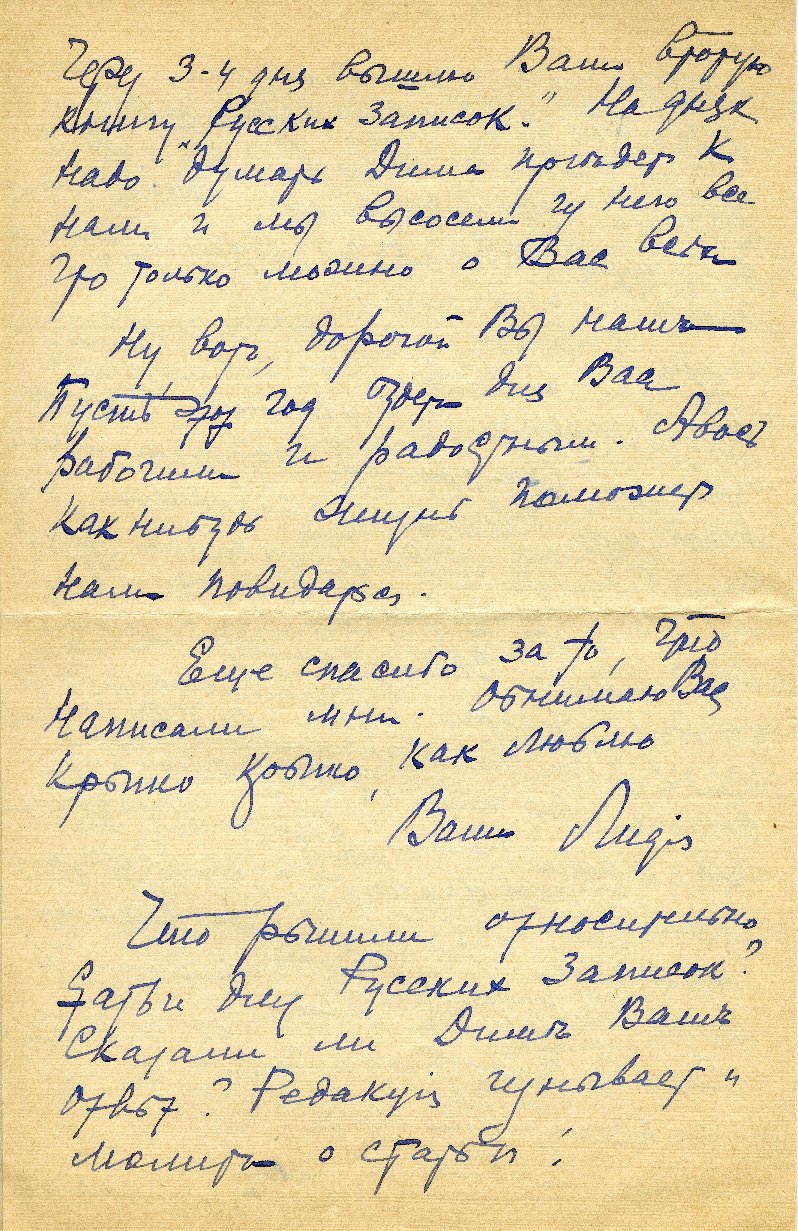 Через 3-4 дня вышлю Вам вторую
книгу "Русских Записок." На днях
надо думать Дима приѣдет к
нам и мы высосем из него все
что только можно о Вас
Ну вот, дорогой Вы наш
Пусть этот год будет для Вас
рабочим и радостным. Авось
как нибудь жизнь поможет
нам повидаться.
Еще спасибо за то, что
написали мнѣ. Обнимаю Вас
крѣпко крѣпко, как люблю
Ваша Лидія
Что рѣшили относительно
статьи для Русских Записок?
Сказали ли Димѣ Ваш
отвѣт? Редакція унывает и
молит о статьѣ!